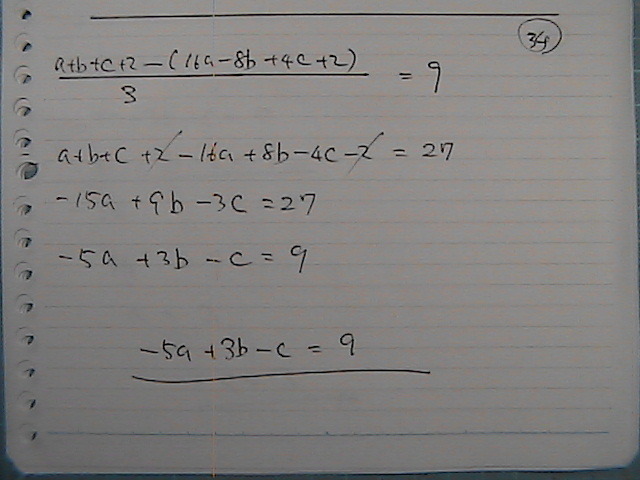 34
a+b+c+2-(16a-8b+4c+2)
3
= 9
a+b+c+2-16a+8b-4c-2 = 27
-15a+9b-3c=27
-5a+3b-c=9
-5a+3b-c=9